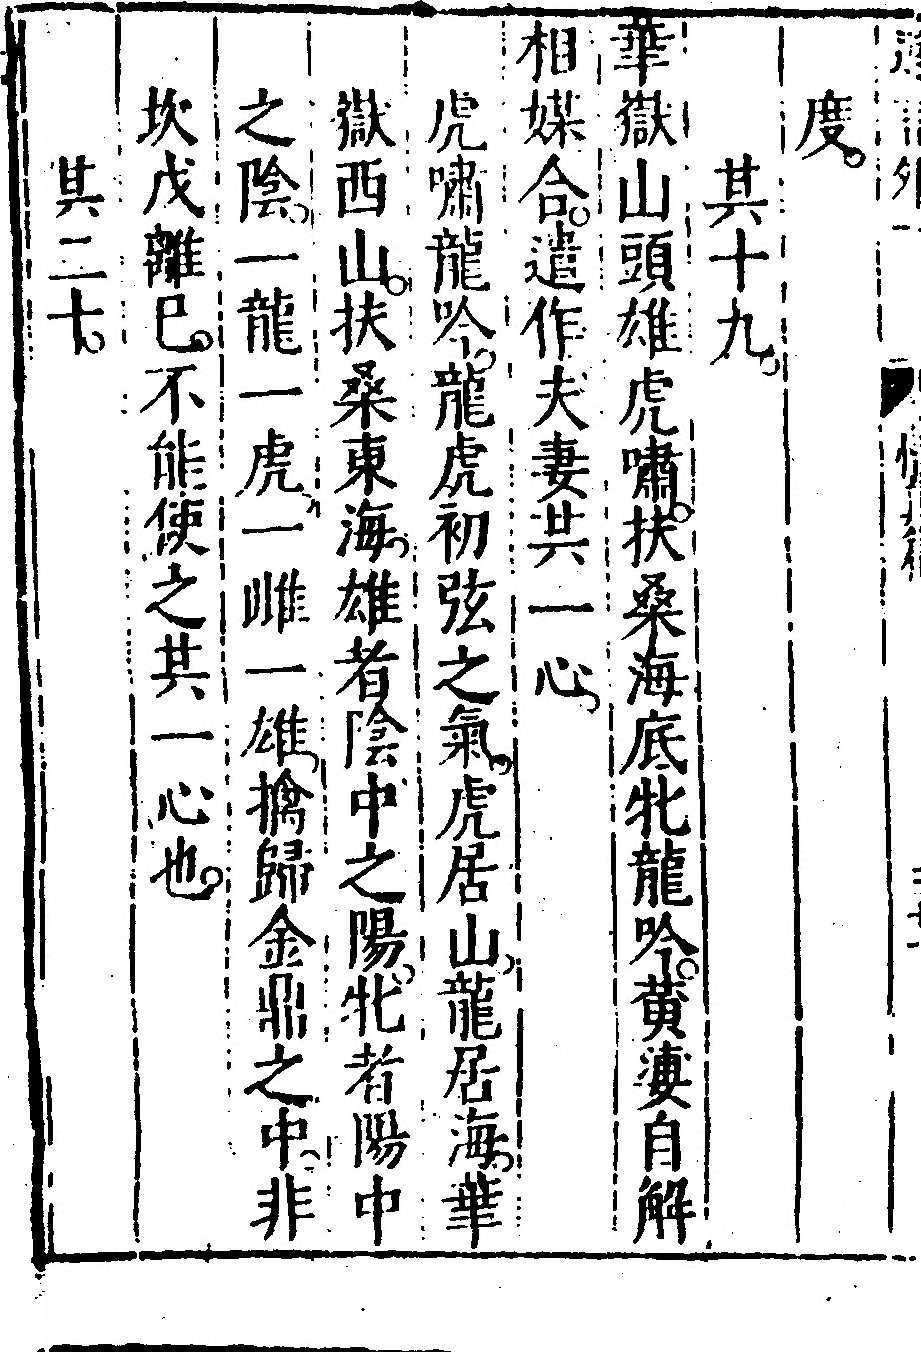 度。
其十九。
華嶽山頭雄虎嘯。扶桑海底牝龍吟。黃婆自解
相媒合。遣作夫妻共一心。
虎嘯龍吟。龍虎初弦之氣。虎居山、龍居海。華
嶽西山。扶桑東海。雄者陰中之陽。牝者陽中
之陰。一龍一虎、一雌一雄、擒歸金鼎之中、非
坎戊離己。不能使之共一心也。
其二十。